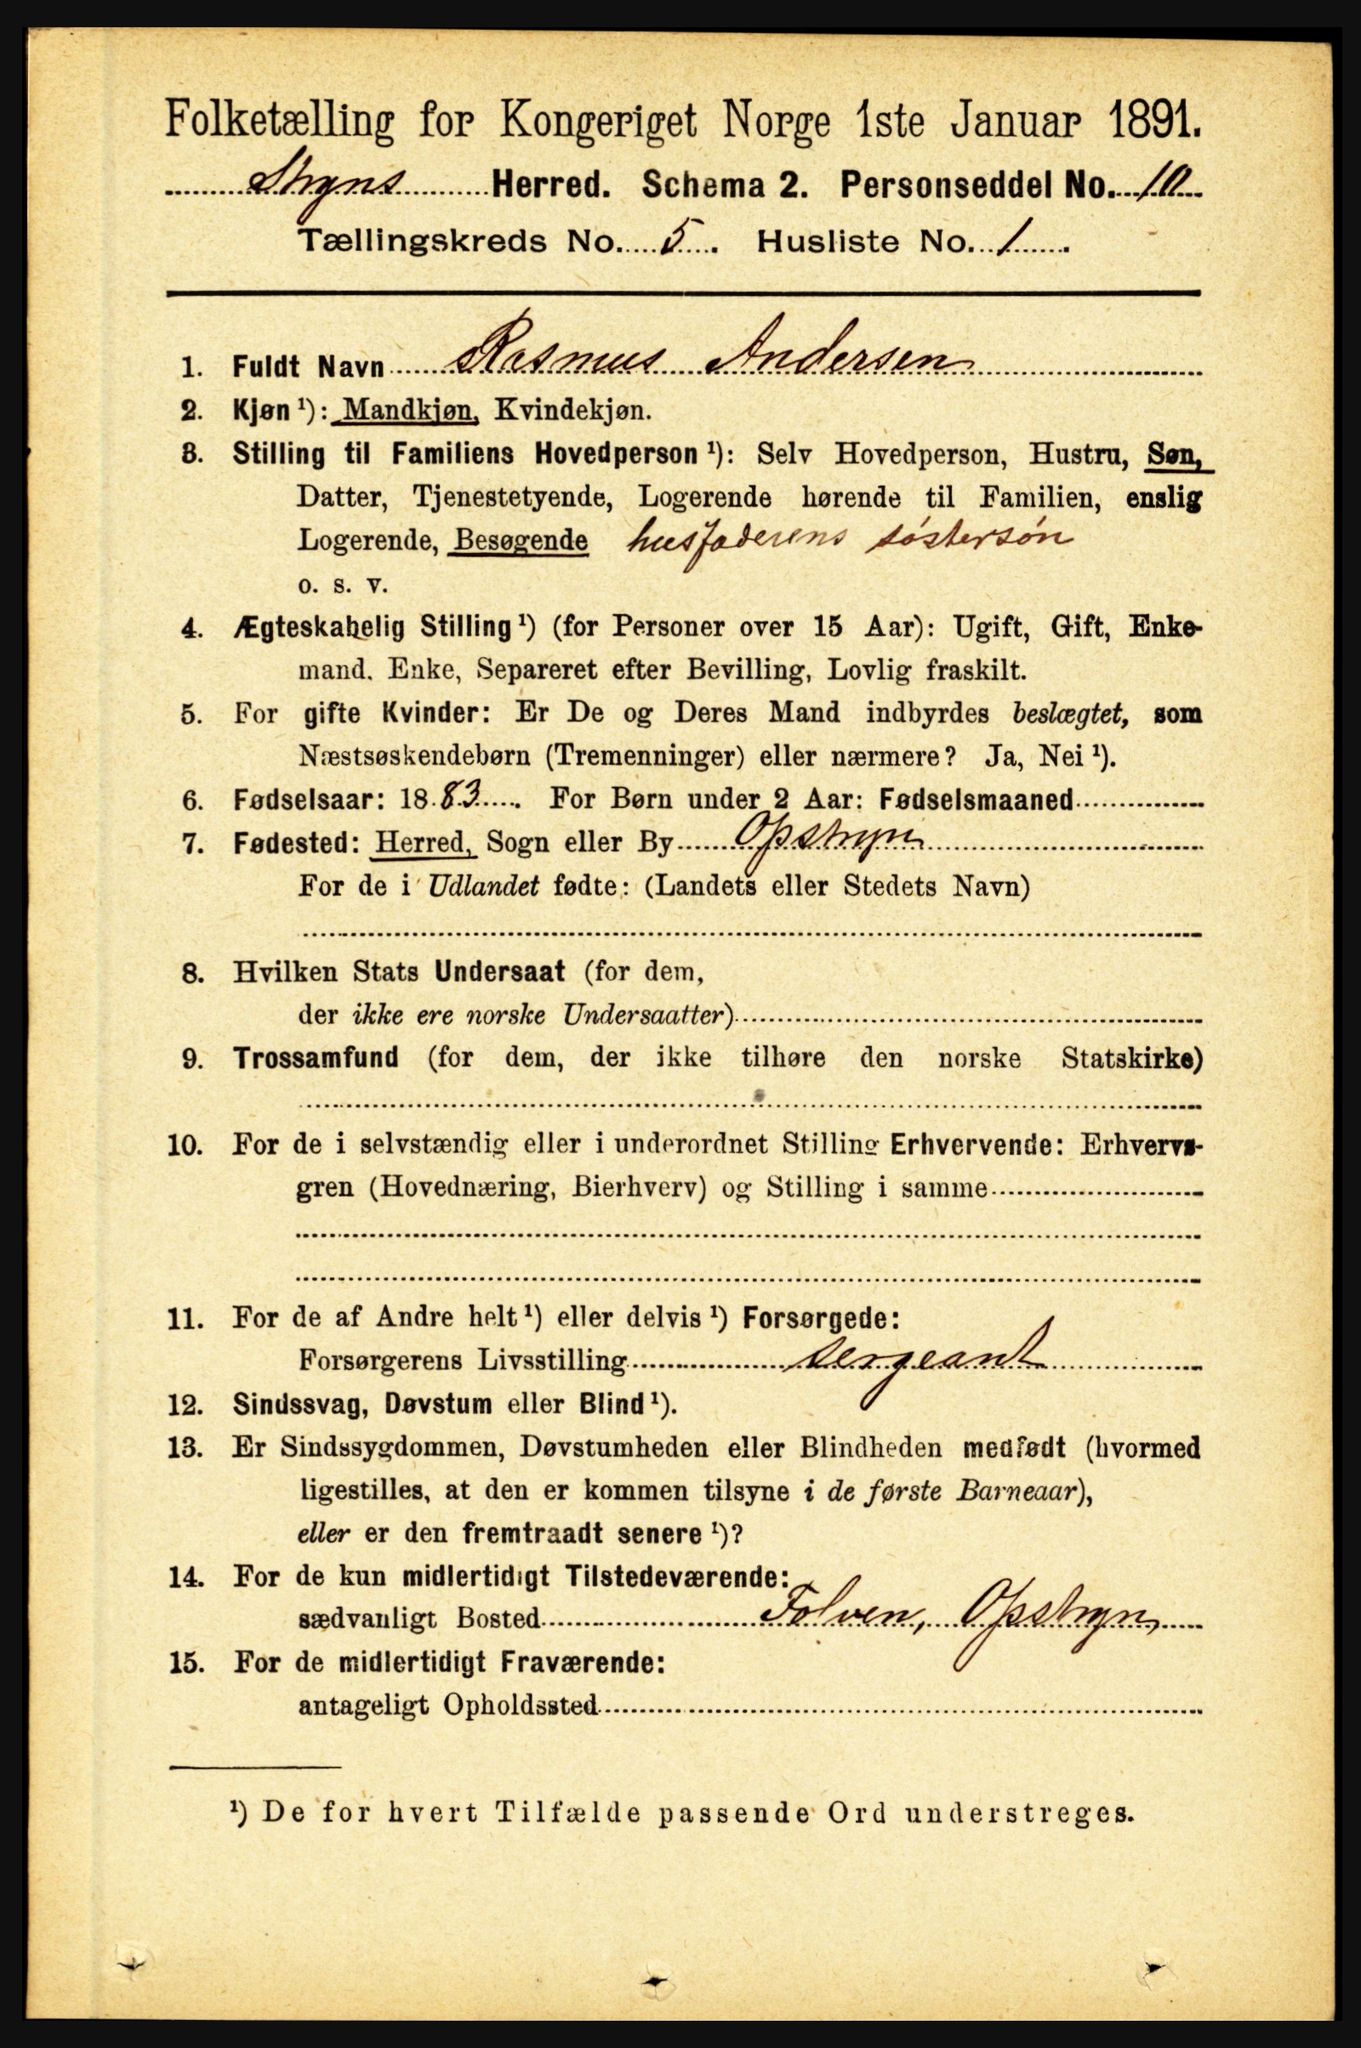 Folketælling for Kongeriget Norge 1ste Januar 1891.
Stryns Herred. Schema 2. Personseddel No. 10
Tællingskreds No. 5. Husliste No. 1.
1. Fuldt Navn Rasmus Andersen
2. Kjøn ¹): Mandkjøn, Kvindekjøn.
3. Stilling til Familiens Hovedperson ¹): Selv Hovedperson, Hustru, Søn,
Datter, Tjenestetyende, Logerende hørende til Familien, enslig
Logerende, Besøgende husfaderens søstersøn
o. s. v.
4. Ægteskabelig Stilling ¹) (for Personer over 15 Aar): Ugift, Gift, Enke-
mand, Enke, Separeret efter Bevilling, Lovlig fraskilt.
5. For gifte Kvinder: Er De og Deres Mand indbyrdes beslægtet, som
Næstsøskendebørn (Tremenninger) eller nærmere? Ja, Nei ¹).
6. Fødselsaar: 1883. For Børn under 2 Aar: Fødselsmaaned
7. Fødested: Herred, Sogn eller By Opstryn
For de i Udlandet fødte: (Landets eller Stedets Navn)
8. Hvilken Stats Undersaat (for dem,
der ikke ere norske Undersaatter)
9. Trossamfund (for dem, der ikke tilhøre den norske Statskirke)
10. For de i selvstændig eller i underordnet Stilling Erhvervende: Erhvervs-
gren (Hovednæring, Bierhverv) og Stilling i samme
11. For de af Andre helt ¹) eller delvis ¹) Forsørgede:
Forsørgerens Livsstilling sergeant
12. Sindssvag, Døvstum eller Blind ¹).
13. Er Sindssygdommen, Døvstumheden eller Blindheden medfødt (hvormed
ligestilles, at den er kommen tilsyne i de første Barneaar),
eller er den fremtraadt senere ¹)?
14. For de kun midlertidigt Tilstedeværende:
sædvanligt Bosted Folven, Opstryn
15. For de midlertidigt Fraværende:
antageligt Opholdssted
¹) De for hvert Tilfælde passende Ord understreges.